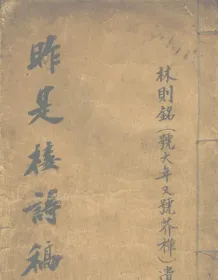 林則銘（號大年又號芥禪）遺
昨是樓詩稿